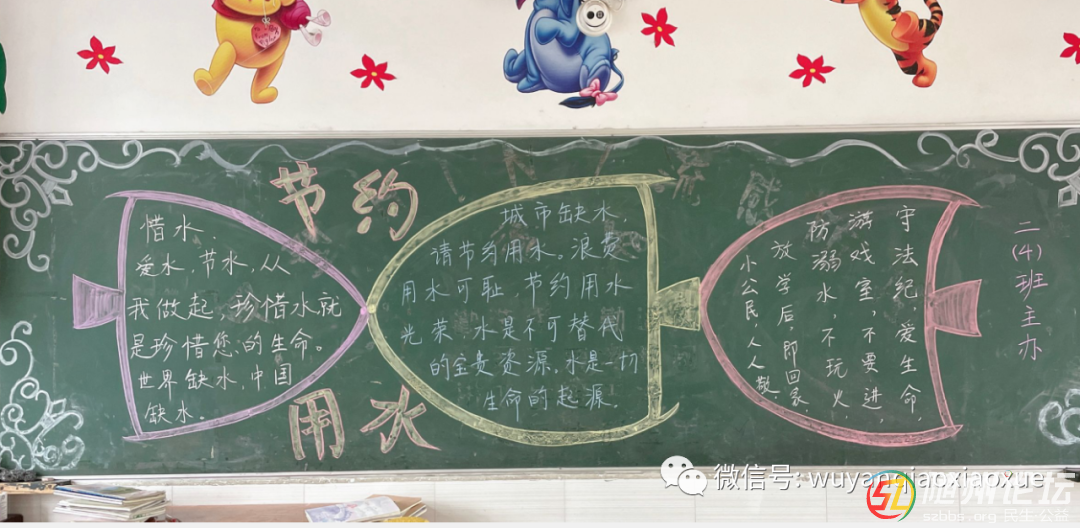 节约
用水
惜水
爱水,节水,从
我做起,珍惜水就
是珍惜您的生命。
世界缺水,中国
缺水。
城市缺水,
请节约用水。浪费
用水可耻,节约用水
光荣,水是不可替代
的宝贵资源,水是一切
生命的起源。
守法纪,爱生命,
游戏室,不要进,
防溺水,不玩火,
放学后,即回家,
小公民,人人敬
二(4)班主办
微信号: wuyanqiaoxiaoxue
随州论坛
szbbs.org 民生·公益